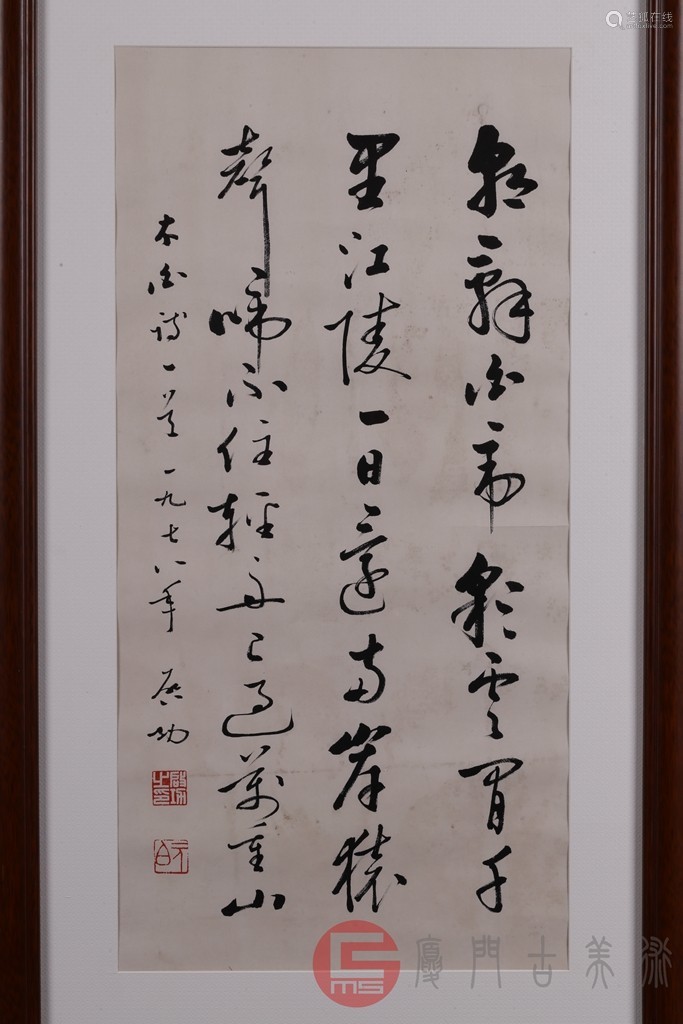 朝辭白帝彩雲間千
里江陵一日還兩岸猿
聲啼不住輕舟已過萬重山
太白詩一首 一九七八年 啟功
啟功之印
元白
廈門古美術
艺狐在线